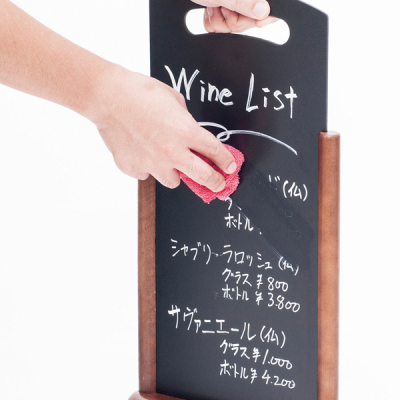 Wine List
(仏)
ボトル
シャブリ・ラロッシュ(仏)
グラス ¥800
ボトル ¥3.800
サヴァニエール(仏)
グラス¥1.000
ボトル¥4.200